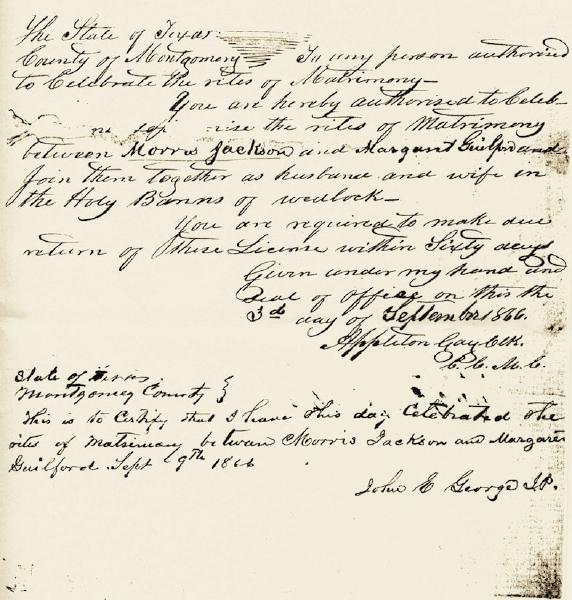 The State of Texas
County of Montgomery To any person authorised
to Celebrate the rites of Matrimony—
You are hereby authorised to Celeb-
ise the rites of Matrimony
between Morris Jackson and Margaret Guilford and
Join them together as husband and wife in
the Holy Banns of wedlock—
You are required to make due
return of these License within Sixty days
Given under my hand and
Seal of office on this the
3d day of September 1866.
Appleton Gay Clk.
C. C. M. C.
State of Texas
Montgomery County }
This is to Certify that I have this day Celebrated the
rites of Matrimony between Morris Jackson and Margaret
Guilford Sept 9th 1866
John E George J.P.